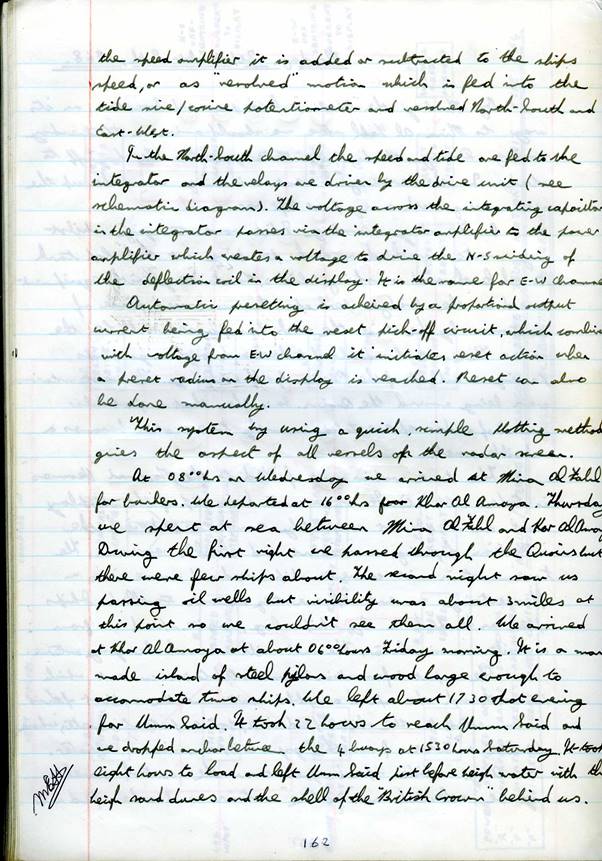 the speed amplifier it is added or subtracted to the ships
speed, or as "resolved" motion which is fed into the
tide sine/cosine potentiometer and resolved North-South and
East-West.
In the North-South channel the speed and tide are fed to the
integrator and the relays are driven by the drive unit (see
schematic diagram). The voltage across the integrating capacitor
in the integrator passes via the integrator amplifier to the power
amplifier which creates a voltage to drive the N-S winding of
the deflection coil in the display. It is the same for E-W channe
Automatic resetting is acheived by a proportional output
current being fed into the reset pick-off circuit, which combin
with voltage from E-W channel it initiates reset action when
a preset radius on the display is reached. Reset can also
be done manually.
This system by using a quick, simple plotting method
gives the aspect of all vessels on the radar screen.
At 08⁰⁰hrs on Wednesday we arrived at Mina Al Fahl
for bunkers. We departed at 16⁰⁰hrs for Khor Al Amaya. Thursday
we spent at sea between Mina Al Fahl and Kor Al Amay
During the first night we passed through the Quoins but
there were few ships about. The second night saw us
passing oil wells but visibility was about 3 miles at
this point so we couldn't see them all. We arrived
at Khor Al Amaya at about 06⁰⁰hours Friday morning. It is a man
made island of steel pylons and wood large enough to
accomodate two ships. We left about 1730 that evening
for Umm Said. It took 22 hours to reach Umm Said and
we dropped anchor between the 4 buoys at 1530 hours Saturday. It took
eight hours to load and left Umm Said just before heigh water with the
heigh sand dunes and the shell of the "British Crown" behind us.
162